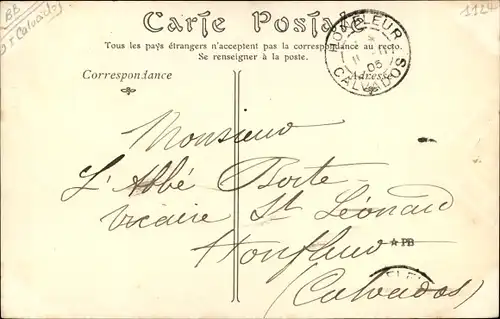 BB
Calvados
1124
Carte Postale
Tous les pays étrangers n'acceptent pas la correspondance au recto.
Se renseigner à la poste.
HONFLEUR
05
CALVADOS
Correspondance
Adresse
Monsieur
L'Abbé Borte
Vicaire St Léonard
Honfleur
★PB
(Calvados)